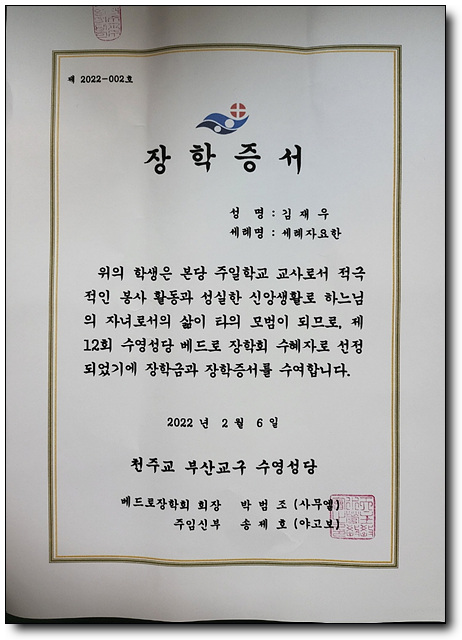 제 2022-002호
장학증서
성 명 : 김재우
세례명 : 세례자요한
위의 학생은 본당 주일학교 교사로서 적극
적인 봉사 활동과 성실한 신앙생활로 하느님
의 자녀로서의 삶이 타의 모범이 되므로, 제
12회 수영성당 베드로 장학회 수혜자로 선정
되었기에 장학금과 장학증서를 수여합니다.
2022 년 2 월 6 일
천주교 부산교구 수영성당
베드로장학회 회장 박 범 조 (사무엘)
주임신부 송 제 호 (야고보)